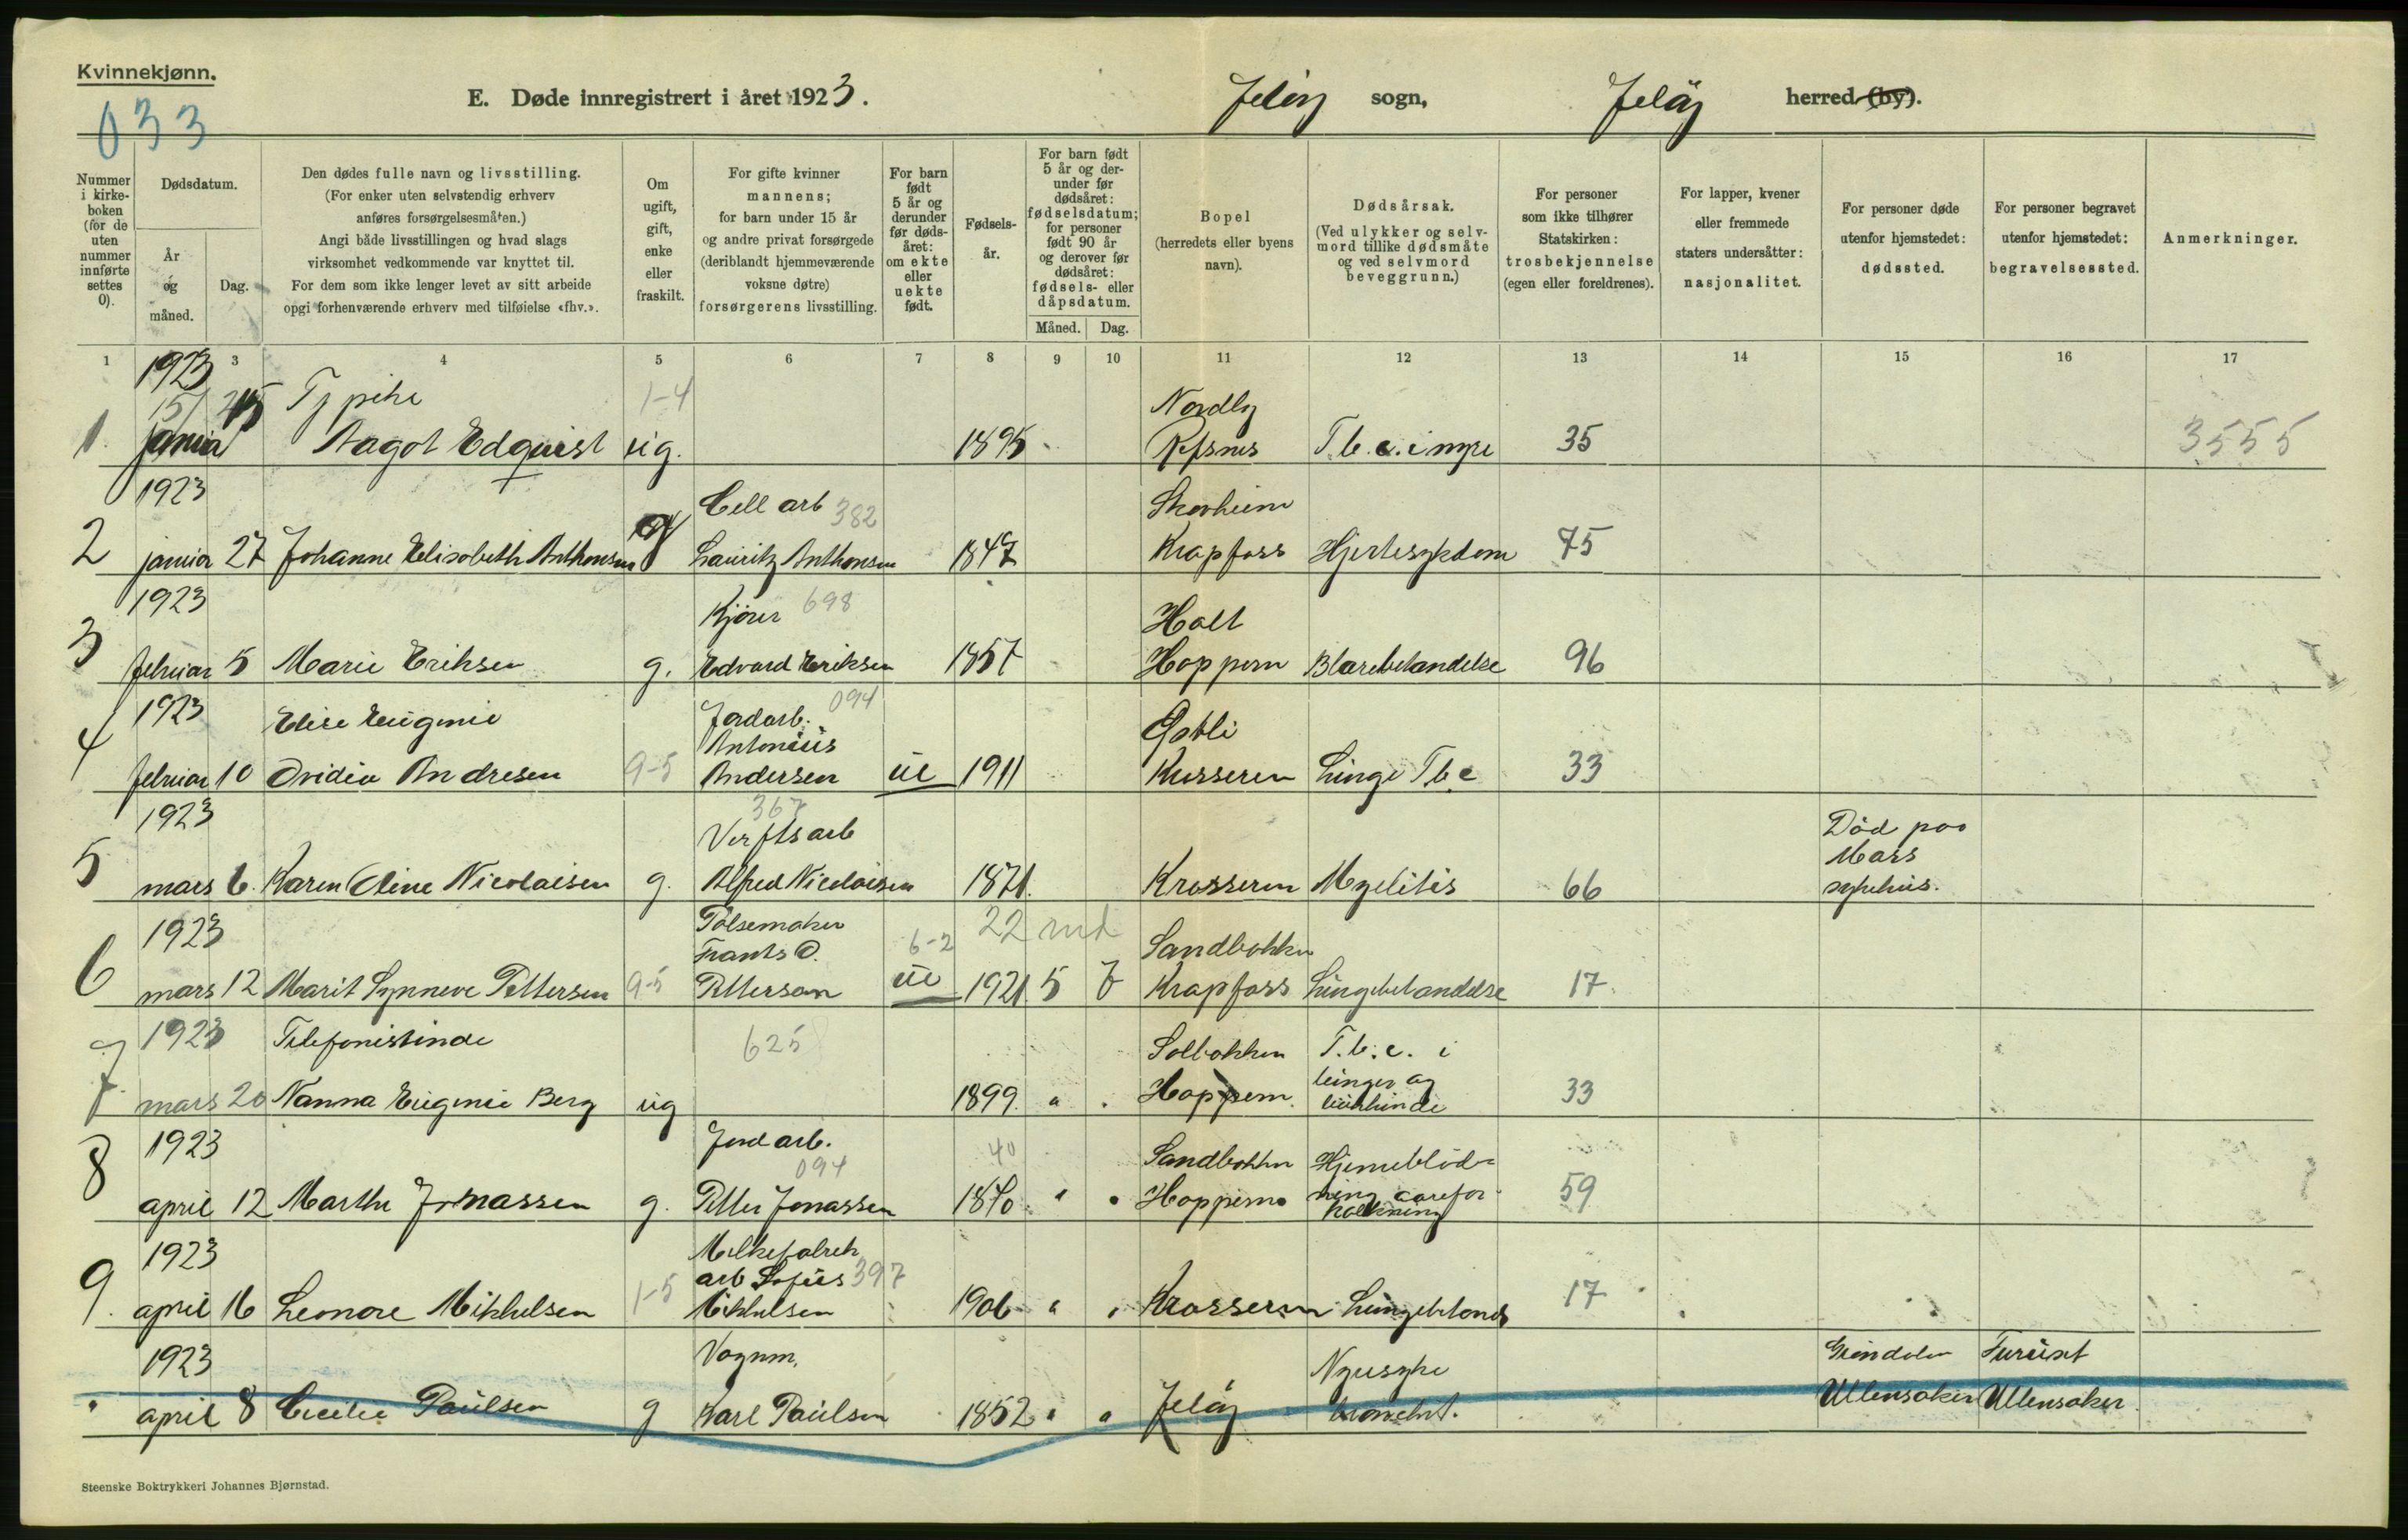 Kvinnekjønn.
033
E. Døde innregistrert i året 1923.
Jeløy sogn,
Jeløy herred (by).
Nummer i kirke-boken (for de uten nummer innførte settes 0).
Dødsdatum.
År og måned.
Dag.
Den dødes fulle navn og livsstilling.
(For enker uten selvstendig erhverv
anføres forsørgelsesmåten.)
Angi både livsstillingen og hvad slags
virksomhet vedkommende var knyttet til.
For dem som ikke lenger levet av sitt arbeide
opgi forhenværende erhverv med tilføielse «fhv.».
Om ugift, gift, enke eller fraskilt.
For gifte kvinner
mannens;
for barn under 15 år
og andre privat forsørgede
(deriblandt hjemmeværende
voksne døtre)
forsørgerens livsstilling.
For barn født 5 år og derunder før døds-året: om ekte eller uekte født.
Fødsels-år.
For barn født 5 år og der-under før dødsåret: fødselsdatum; for personer født 90 år og derover før dødsåret: fødsels- eller dåpsdatum.
Måned. Dag.
Bopel
(herredets eller byens
navn).
Dødsårsak.
(Ved ulykker og selv-
mord tillike dødsmåte
og ved selvmord
beveggrunn.)
For personer
som ikke tilhører
Statskirken:
trosbekjennelse
(egen eller foreldrenes).
For lapper, kvener
eller fremmede
staters undersåtter:
nasjonalitet.
For personer døde
utenfor hjemstedet:
dødssted.
For personer begravet
utenfor hjemstedet:
begravelsessted.
Anmerkninger.
1 3 4 5 6 7 8 9 10 11 12 13 14 15 16 17
1923
Tj pike 1-4 Nordly
1. januar Aagot Edquist ug. 1895 Refsnes T.b.c. i nyre 35 3555
1923 Cell arb 382 Skovheim
2 januar 27 Johanne Elisabeth Anthonsen g Lauritz Anthonsen 1847 Krapfoss Hjertesykdom 75
1923 Kjører 698 Holt
3 februar 5 Marie Eriksen g. Edvard Eriksen 1857 Hoppern Blærebetændelse 96
1923 Elise Eugenie Jordarb. 094
Antonius
4 februar 10 Ovidia Andresen 9-5 Andersen ue 1911 Lunge Tbc 33
1923 367
Verftsarb Død paa
Moss
5 mars 6. Karen Oline Nicolaisen g. Alfred Nicolaisen 1871. Krosseren Myelitis 66 sykehus.
1923 Pølsemaker 22 md
Frants O. 6-2 Sandbakken
6 mars 12 Marit Synnøve Pettersen 9-5 Petterson ue 1921 5 7 Krapfoss Lungebetændelse 17
1923 Telefonistinde 625 Solbakken T.b.c. i
lunger og
7 mars 20 Nanna Eugenie Berg ug 1899 " Hoppern. 33
1923 Jord arb. 40 Sandbakken Hjerneblød-
094
8 april 12 Marthe Jonassen g. Petter Jonassen 1840 " Hoppern ning aarefor-
kalkning 59
1923 Melkefabrik
arb Sofus 397
9. april 16 Leonore Mikkelsen 1-5 Mikkelsen 1906 " Krosseren Lungebetænd 17
1923 Vognm. Nyresyke Furuset
" april 8 Cecilie Paulsen g Karl Paulsen 1852 " " Jeløy Ullensaker Ullensaker
Steenske Boktrykkeri Johannes Bjørnstad.